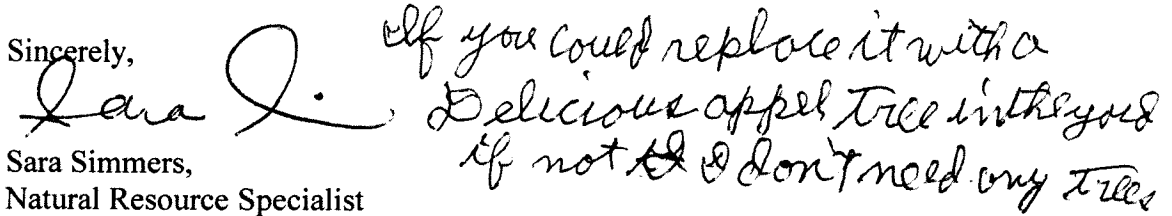 Sincerely,
Sara Si
Sara Simmers,
Natural Resource Specialist
If you could replace it with a
Delicious appel tree in the yord
if not I don't need any trees